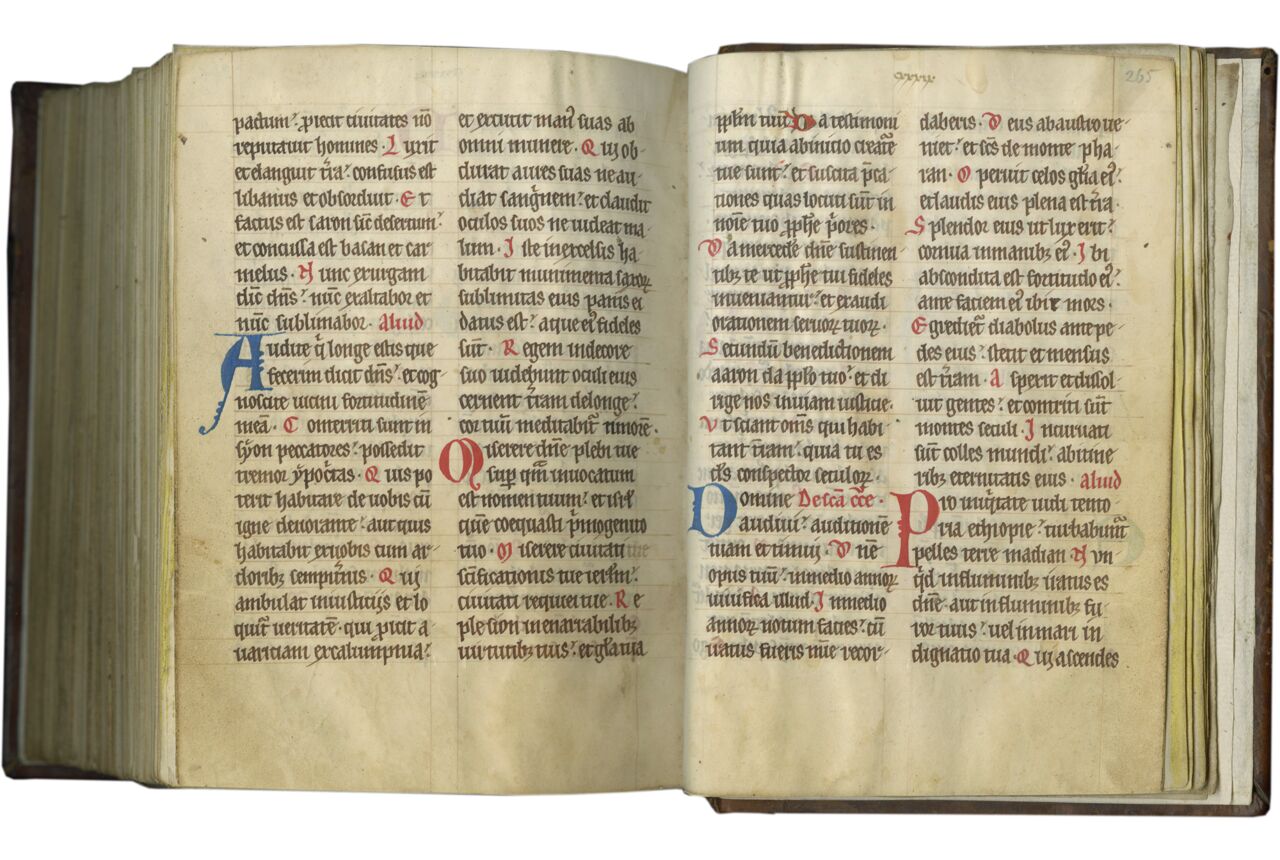 pactum? ꝓiecit ciuitates nō
reputauit homines. Luxit
et elanguit t̄ra? confusus est
libanus et obsorduit. Et
factus est saron sic̄ desertum?
et concussa est basan et car
melus. Nunc exurgam
dic̄ dn̄s? nūc exaltabor et
nūc sublimabor. Aliud
Audite q̄ longe estis que
fecerim dicit dn̄s? et cog-
noscite uicini fortitudinē
meā. Conterriti sunt in
syon peccatores? possedit
tremor ypoc̄tas. Quis po
terit habitare de uobis cū
igne deuorante? aut quis
habitabit ex uobis cum ar-
doribꝫ sempit̄nis. Qui
ambulat in iusticijs et lo
quit̄ ueritatē. qui ꝓicit a-
uariciam ex calumpnia?
et excutit man᷒ suas ab
omni munere. Qui ob-
durat aures suas ne au-
diat sangͥnem? et claudit
oculos suos ne uideat ma-
lum. Iste in excelsis ha-
bitabit munimenta saxoꝝ
sublimitas eius panis ei
datus est? aque ei᷒ fideles
sūt. Regem in decore
suo uidebunt oculi eius
cernent t̄ram de longe?
cor tuū meditabit̄ timorē.
Miserere dn̄e plebi tue
sup̱ qm̄ inuocatum
est nomen tuum? et isrl̄
quē coequasti p̄mogenito
tuo. Miserere ciuitati
sc̄ificationis tue ierlm̄?
ciuitati requiei tue. Re
ple sion inenarrabilibꝫ
uirtutibꝫ tuis? et gl̄a tua
pplm̄ tuū. Da testimoni
um quia ab inicio creatē
tue sunt? et suscita p̄ca-
tiones quas locuti sūt in
noīe tuo ꝓphe p̄ores.
Da mercedē dn̄e sustinen-
tibꝫ te ut ꝓphe tui fideles
inueniantur? et exaudi
orationem seruoꝝ tuoꝝ.
Secundū benedictionem
aaron da pplo tuo? et di
rige nos in uiam iusticie.
Ut sciant om̄s qui habi-
tant t̄ram? quia tu es
ds̄ conspector seculoꝝ.
Domine Descā cc̄e.
audiui? auditionē
tuam et timui. Dn̄e
opus tuū? in medio annoꝝ
uiuifica illud. In medio
annoꝝ notum facies? cū
iratus fueris mīe recor-
cxxix
265
daberis. Deus ab austro ue-
niet? et sc̄s de monte pha-
ran. Operuit celos gl̄ia ei᷒?
et laudis eius plena est t̄ra.
Splendor eius ut lux erit?
cornua in manibꝫ ei᷒. Ibi
abscondita est fortitudo ei᷒?
ante faciem ei᷒ ibit mors.
Egrediet̄ diabolus ante pe-
des eius? stetit et mensus
est t̄ram. Asperit et dissol-
uit gentes? et contriti sūt
montes seculi. Incuruati
sūt colles mundi? ab itine
ribꝫ eternitatis eius. Aliud
Pro iniqͥtate uidi tento-
ria ethiopie? turbabunt̄
pelles terre madian Nun
qͥd in fluminibꝫ iratus es
dn̄e. aut in fluminibꝫ fu-
ror tuus? uel in mari in
dignatio tua. Qui ascendes